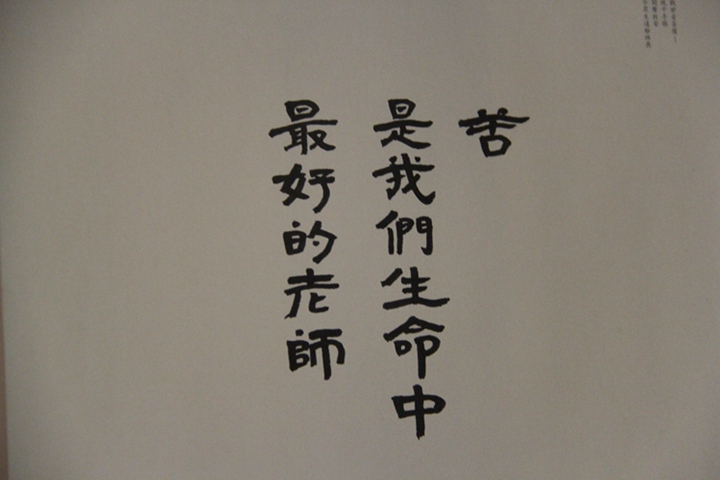 苦
是我們生命中
最好的老師